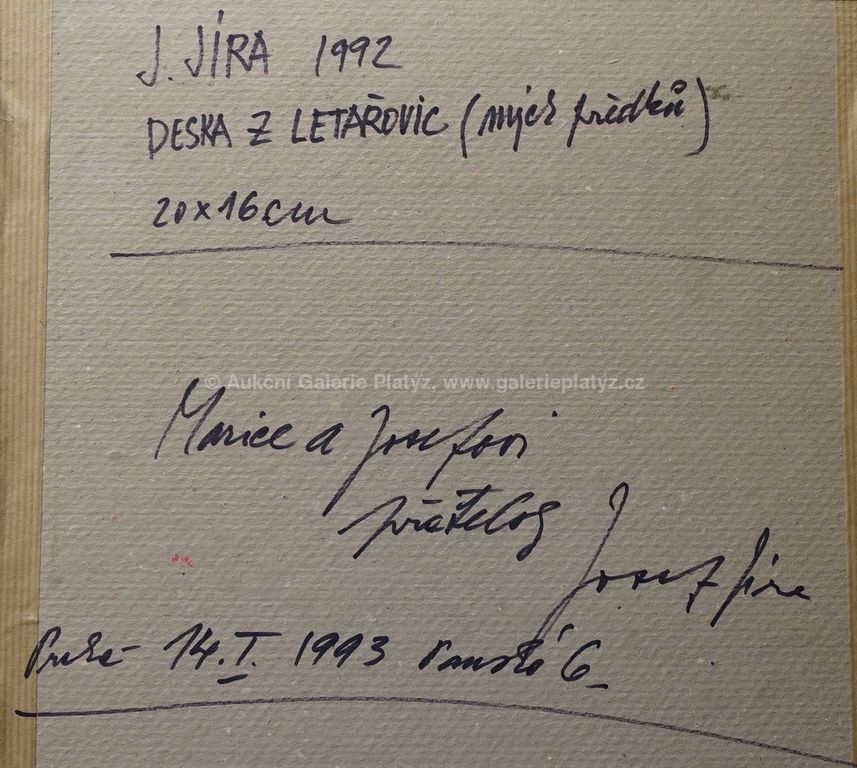 J. JÍRA 1992
DESKA Z LETAŘOVIC (mých předků)
20x16cm
© Aukční Galerie Platýz, www.galerieplatyz.cz
Marice a Josefovi
přátelog
Josef Jíra
Praha 14.I. 1993 Panská 6